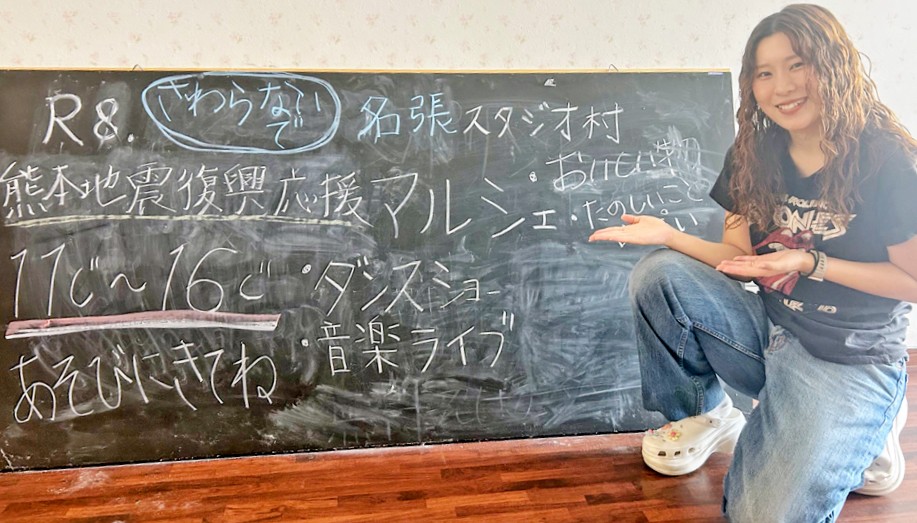 R8. さわらないで 名張スタジオ村
熊本地震復興応援マルシェ
・おいしい物
・たのしいこと
い
11じ〜16じ
・ダンスショー
・音楽ライブ
あそびにきてね